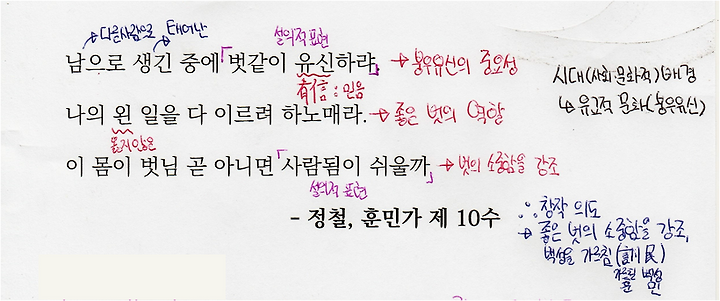 다른사람으로 태어난 설의적 표현
남으로 생긴 중에「벗같이 유신하랴」 → 붕우유신의 중요성
有信 : 믿음
나의 왼 일을 다 이르려 하노매라. → 좋은 벗의 역할
옳지않은
이 몸이 벗님 곧 아니면「사람됨이 쉬울까」 → 벗의 소중함을 강조
설의적 표현
- 정철, 훈민가 제 10수
시대(사회·문화적) 배경
↳ 유교적 문화(붕우유신)
∴ 창작 의도
→ 좋은 벗의 소중함을 강조,
백성을 가르침 (訓民)
가르친 백성
훈 민